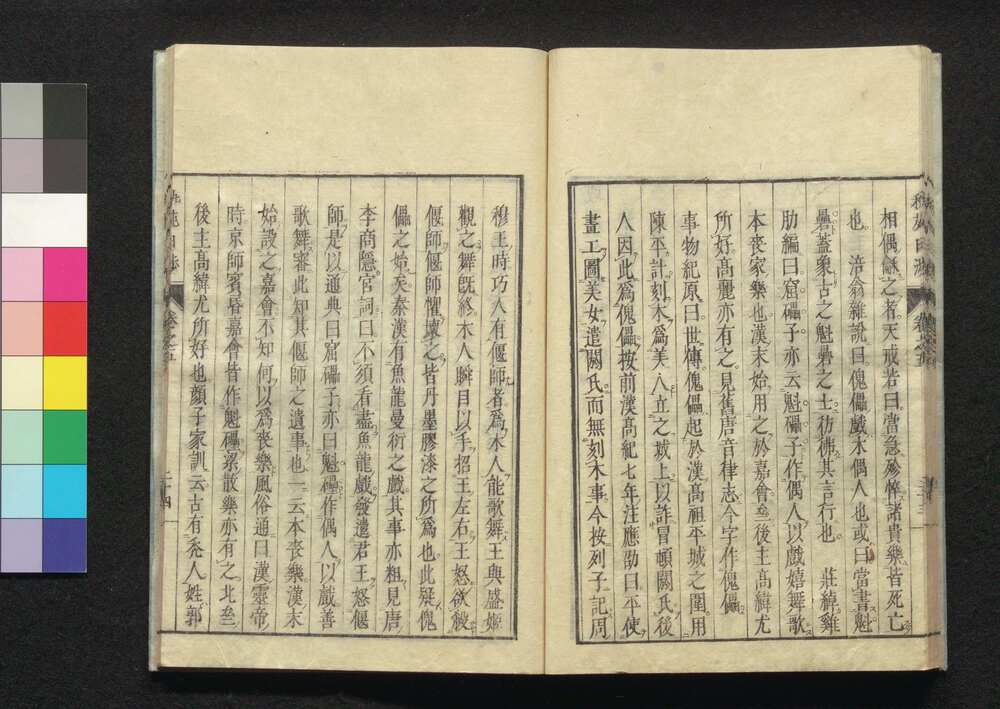 相偶戲之者天戒若曰當急殄悴諸貴樂皆死亡
也　涪翁雜說曰傀儡戲木偶人也或曰當書魁
礨蓋象古之魁礨之士彷彿其言行也　莊綽雞
肋編曰窟礧子亦云魁礧子作偶人以戲嬉舞歌
本喪家樂也漢末始用之於嘉會至後主高緯尤
所好高麗亦有之見舊唐音律志今字作傀儡
事物紀原曰世傳傀儡起於漢高祖平城之圍用
陳平計刻木爲美人立之城上以詐冒頓閼氏後
人因此爲傀儡按前漢高紀七年注應劭曰平使
畫工圖美女遣閼氏而無刻木事今按列子記周
穆王時巧人有偃師者爲木人能歌舞王與盛姬
觀之舞既終木人瞬目以手招王左右王怒欲殺
偃師偃師懼壞之皆丹墨膠漆之所爲也此疑傀
儡之始矣秦漢有魚龍曼衍之戲其事亦粗見唐
李商隱宮詞曰不須看盡魚龍戲發遣君王怒偃
師是以通典曰窟礧子亦曰魁礧作偶人以戲善
歌舞審此知其偃師之遺事也一云本喪樂漢末
始設之嘉會不知何以爲喪樂風俗通曰漢靈帝
時京師賓婚嘉會皆作魁礧梁散樂亦有之北至
後主高緯尤所好也顔子家訓云古有禿人姓郭
卷之五
二十四